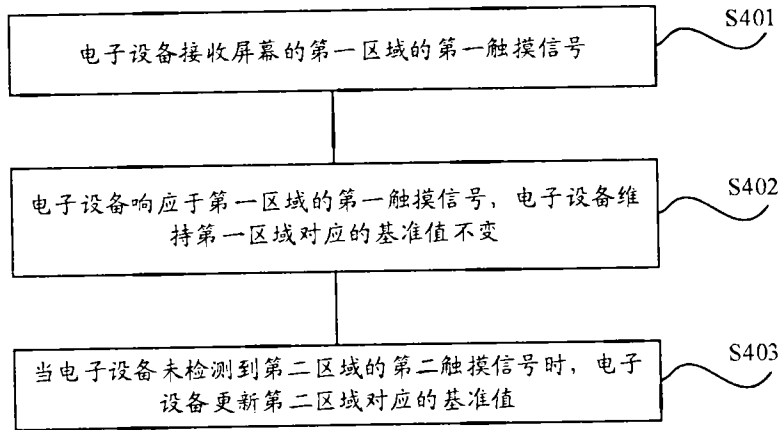 S401
电子设备接收屏幕的第一区域的第一触摸信号
S402
电子设备响应于第一区域的第一触摸信号，电子设备维
持第一区域对应的基准值不变
S403
当电子设备未检测到第二区域的第二触摸信号时，电子
设备更新第二区域对应的基准值